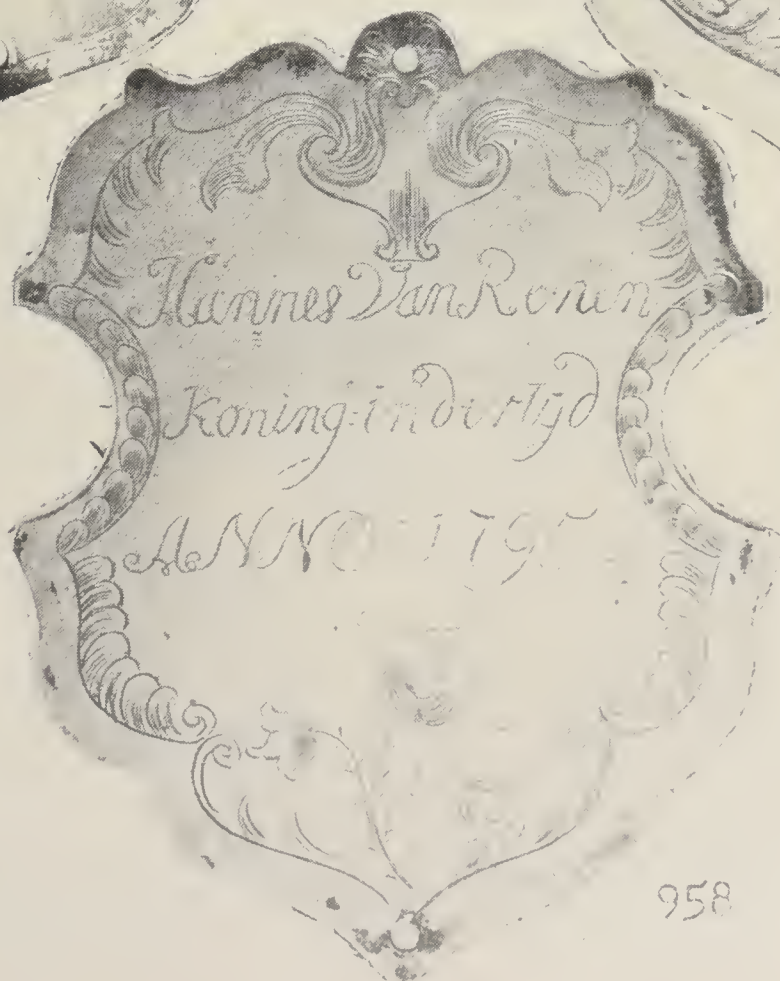 Hannes Van Ronen
Koning: in der tijd
ANNO 1795
958